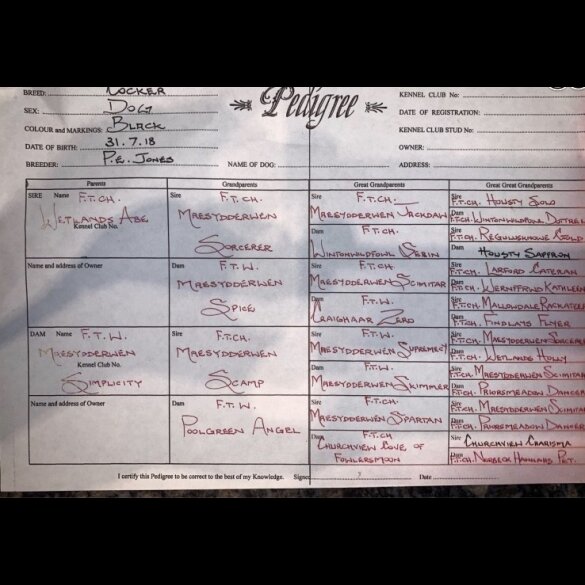 BREED: COCKER
SEX: DOG
COLOUR and MARKINGS: BLACK
DATE OF BIRTH: 31.7.18
BREEDER: P.E. JONES
Pedigree
NAME OF DOG:
KENNEL CLUB No:
DATE OF REGISTRATION:
KENNEL CLUB STUD No:
OWNER:
ADDRESS:
Parents
Grandparents
Great Grandparents
Great Great Grandparents
SIRE Name F.T.CH.
WETLANDS ABE
Kennel Club No.
Name and address of Owner
DAM Name F.T.W.
MAESYDDERWEN
Kennel Club No.
SIMPLICITY
Name and address of Owner
Sire F.T.CH.
MAESYDDERWEN
SORCERER
Dam F.T.W.
MAESYDDERWEN
SPICE
Sire F.T.CH.
MAESYDDERWEN
SCAMP
Dam F.T.W.
POOLGREEN ANGEL
Sire F.T.CH.
MAESYDDERWEN JACKDAW
Dam F.T.CH.
WINTONWILDFOWL
Sire F.T.CH.
MAESYDDERWEN SCIMITAR
Dam F.T.W.
CRAIGHAAR ZERO
Sire F.T.W.
MAESYDDERWEN SUPREMECY
Dam F.T.W.
MAESYDDERWEN SKIMMER
Sire F.T.CH.
MAESYDDERWEN SPARTAN
Dam F.T.CH
CHURCHVIEW LOVE OF
FOWLERSMOUN
Sire F.T.CH. HOUSTY SOLO
Dam F.T.CH. WINTONWILDFOWL
Sire F.T.CH.
Dam HOUSTY SAFFRON
Sire F.T.CH. LARFORD CATERAN
Dam F.T.CH. WERNFFRWD KATHLEEN
Sire F.T.CH. MALLOWDALE RACKATEE
Dam F.T.CH. FINDLAMS FLYER
Sire F.T.CH. MAESYDDERWEN
Dam F.T.CH. WETLANDS HOLLY
Sire F.T.CH. MAESYDDERWEN SCIMITAR
Dam F.T.CH. PRIORSMEADOW DANCER
Sire F.T.CH. MAESYDDERWEN SCIMITAR
Dam F.T.CH. PRIORSMEADOW DANCER
Sire CHURCHVIEW CHARISMA
Dam F.T.CH. NORBECK HANNAHS PET.
I certify this Pedigree to be correct to the best of my Knowledge. Signed
Date